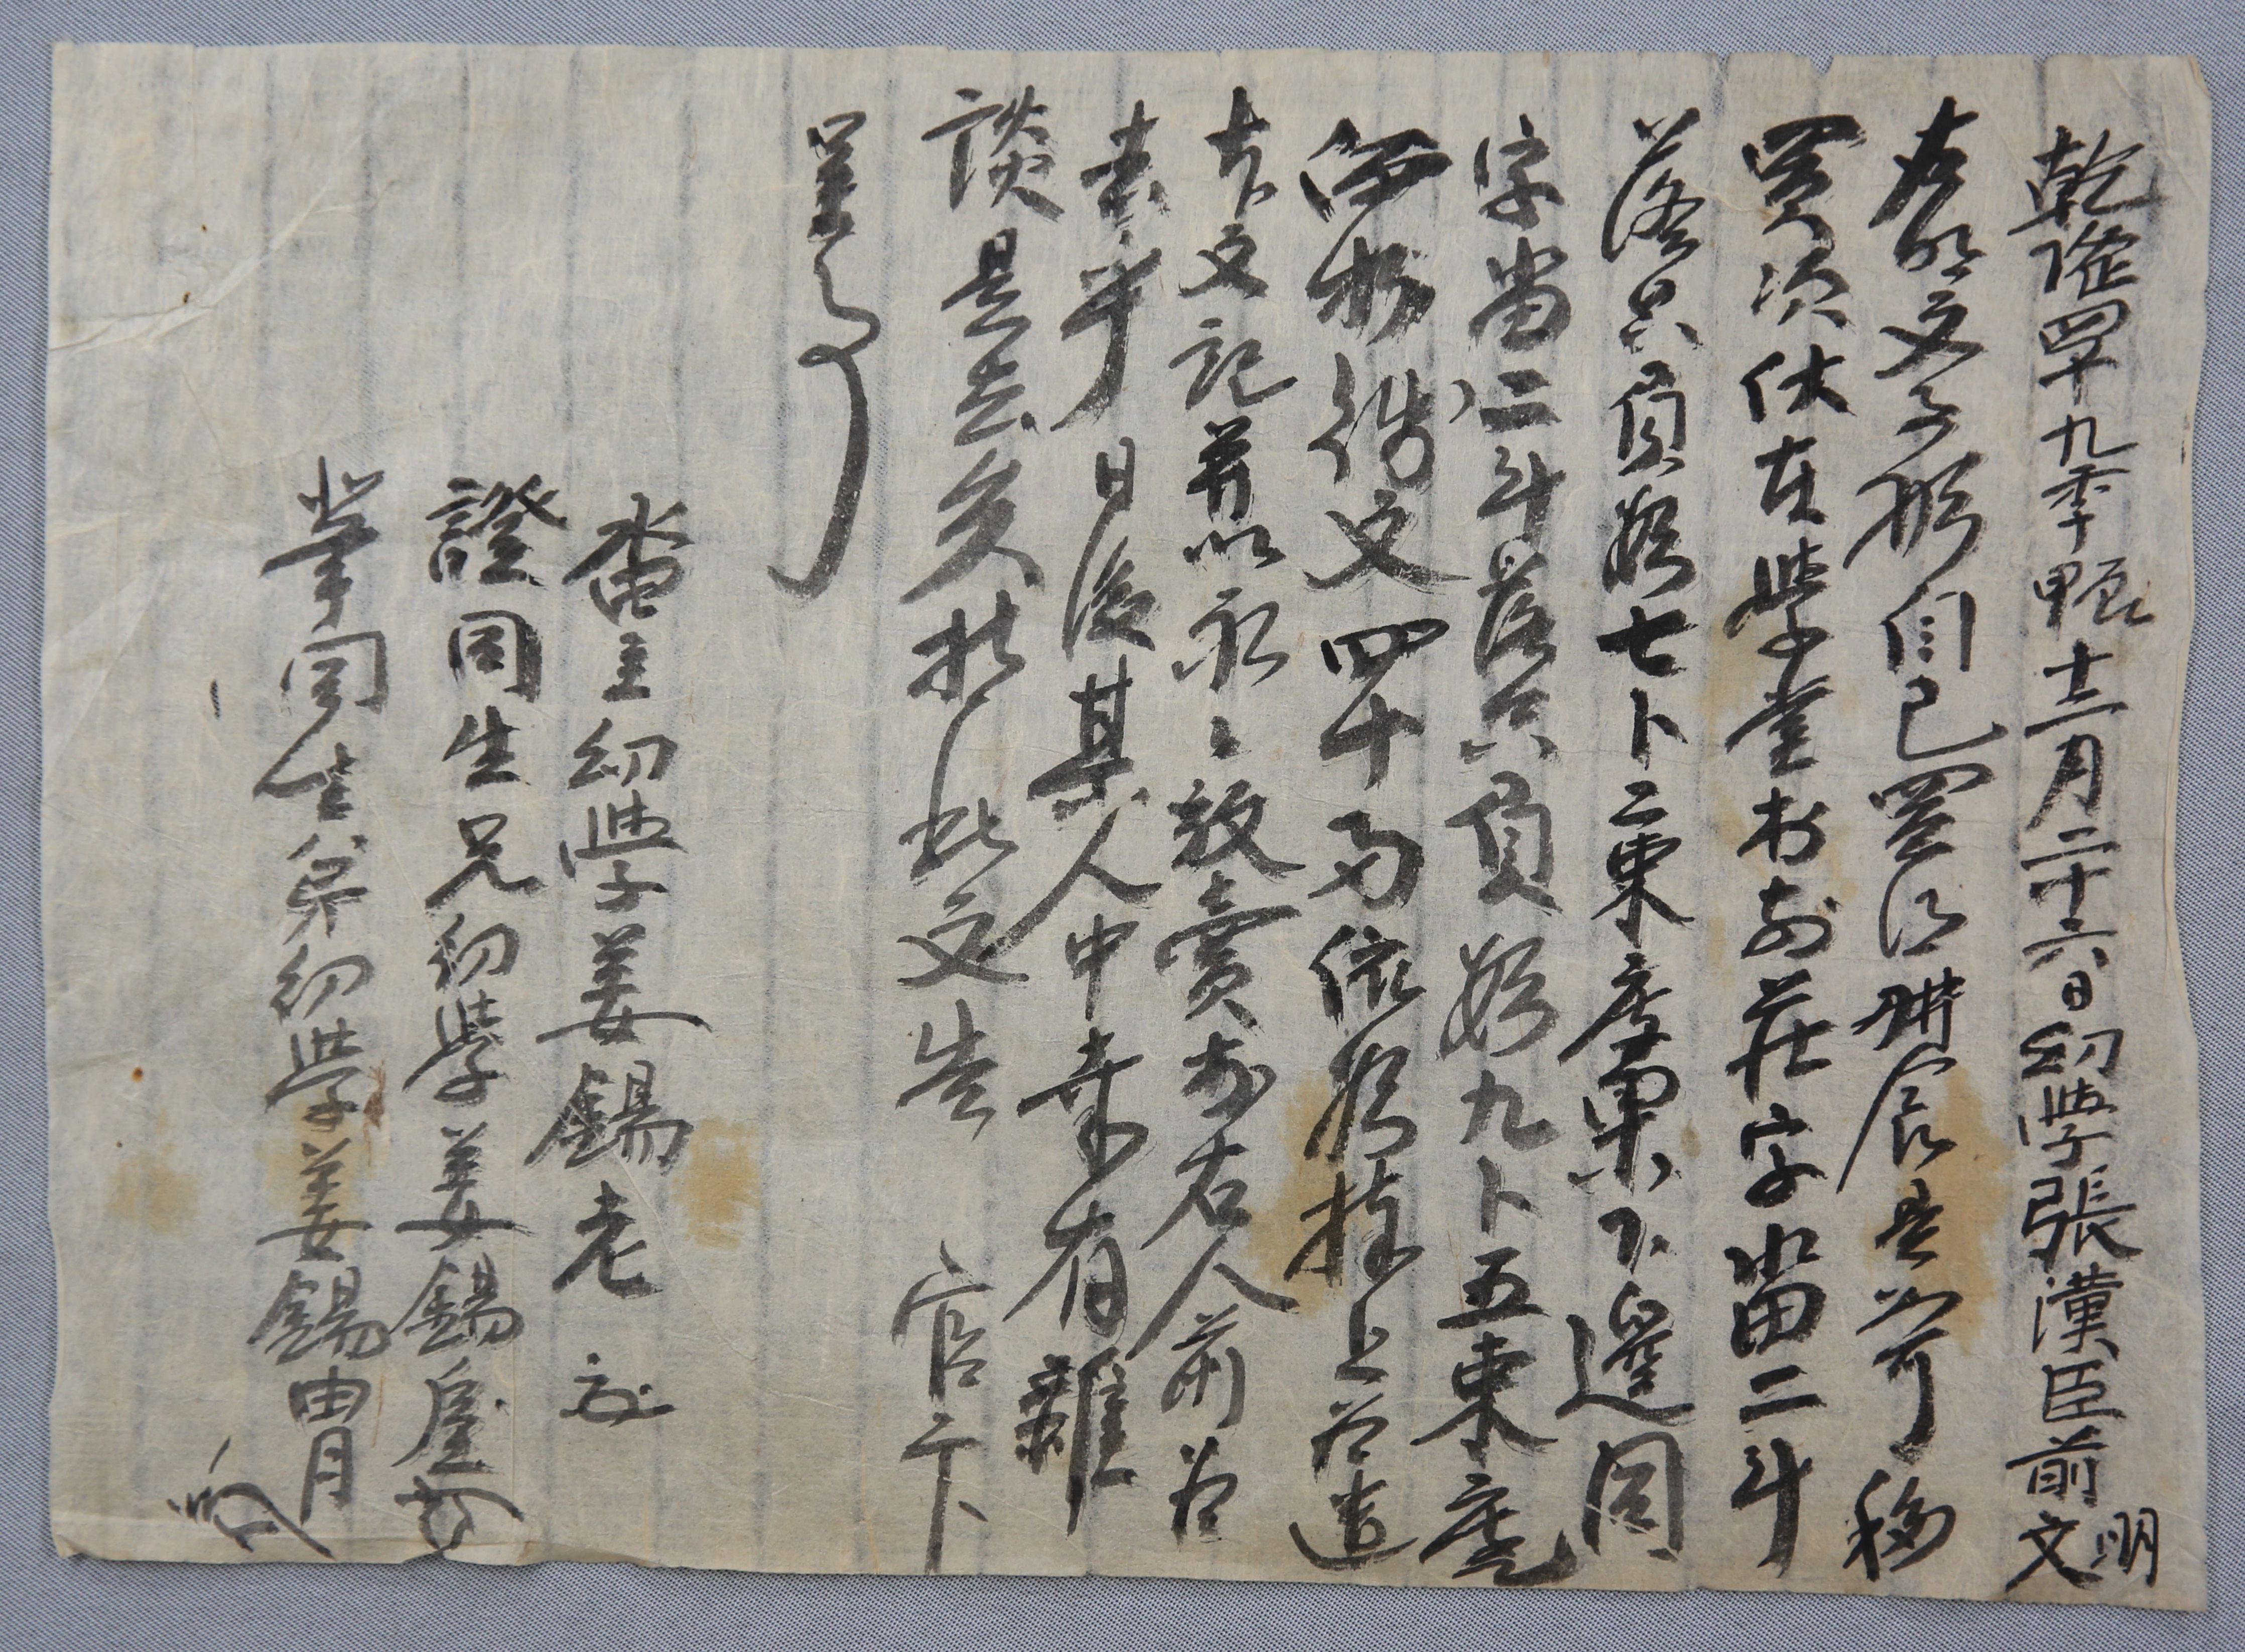 乾隆四十九季甲辰十二月二十六日幼學張漢臣前明文
右明文事段自己買得耕食是如可移
買次伏在學堂村前莊字畓二斗
落只負數七卜二束庫果下邊同
字畓二斗落只負數九卜五束庫
折價錢文四十兩依數捧上爲遣
本文記幷以永永放賣於右人前爲
去乎日後某人中業有雜
談是去矣持此文告官卞
呈事
畓主幼學姜錫老
證同生兄幼學姜錫
筆同生弟幼學姜錫胄